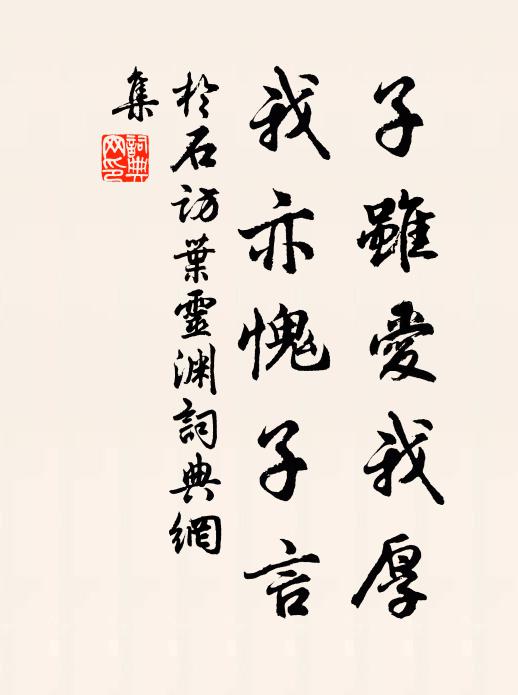 子雖愛我厚
我亦愧子言
於石訪葉靈淵詞典網
集
詞典網印